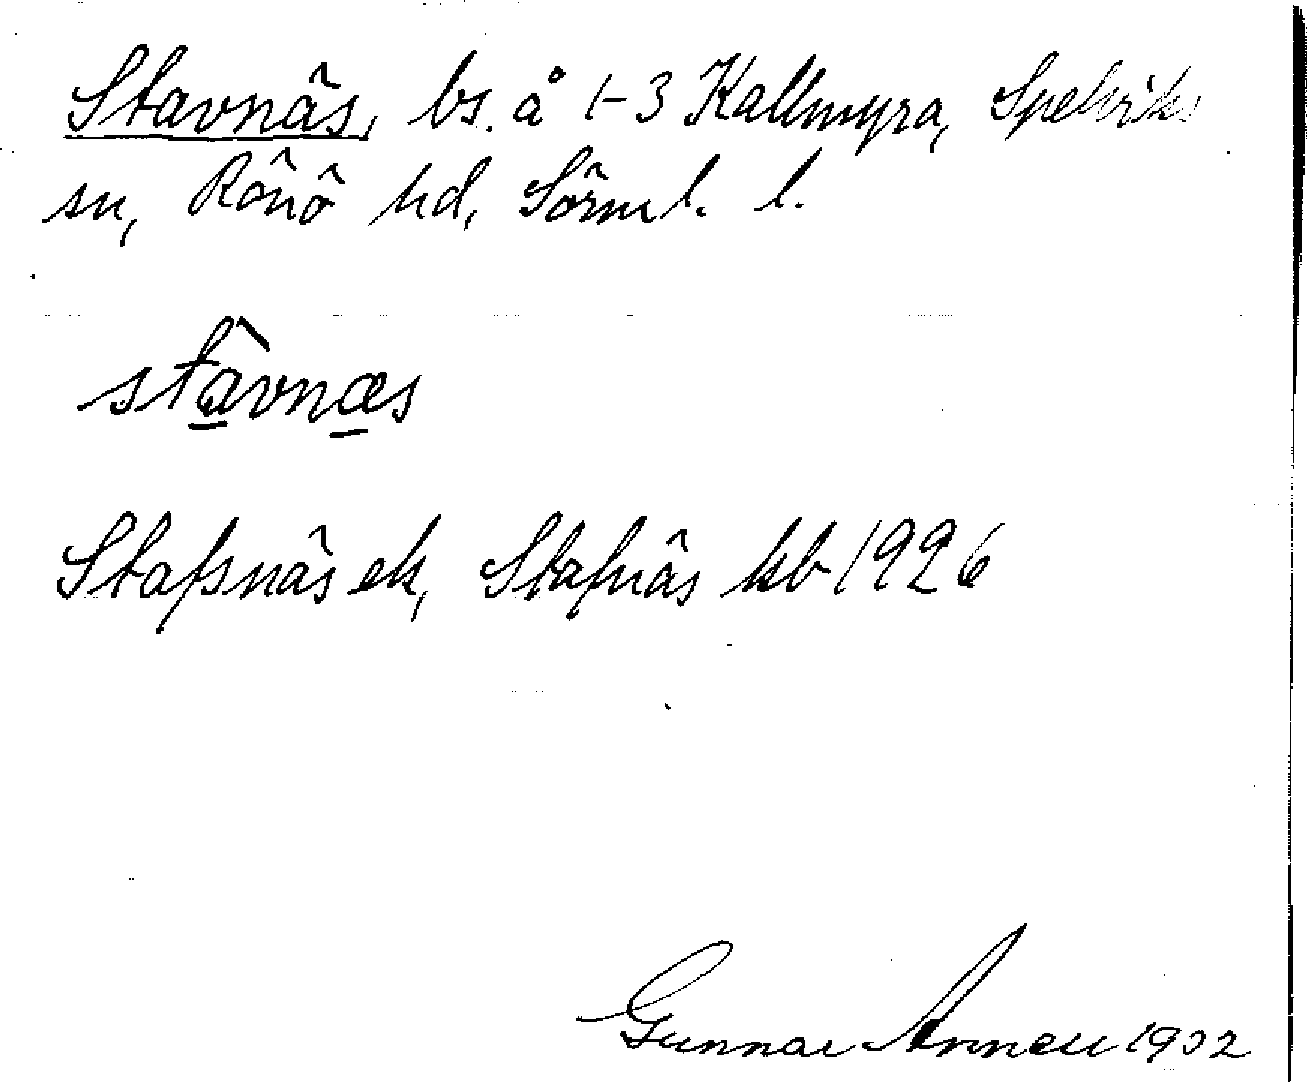 Stavnäs, bs. å 1-3 Kallmyra, Spelviks
sn, Rönö hd, Sörml. l.
stavnæs
Stafsnäs ek, Stafnäs kb 1926
Gunnar 1932